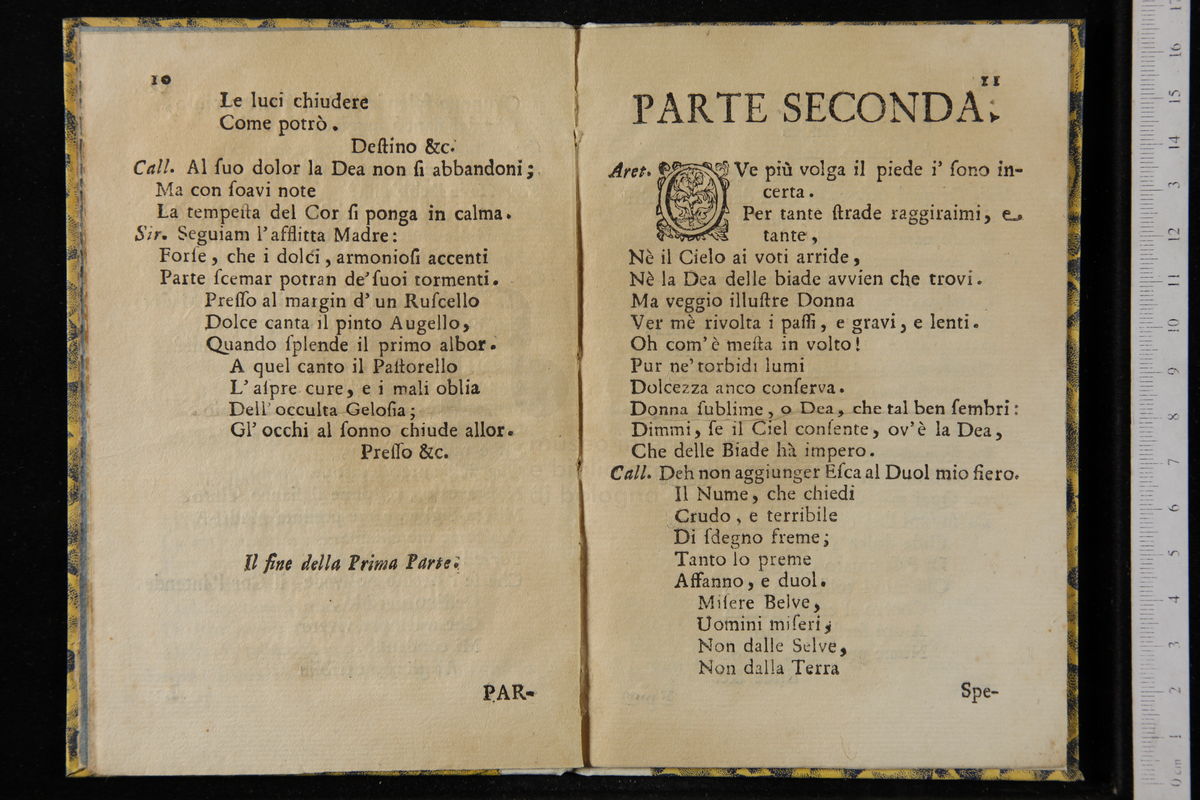 10
Le luci chiudere
Come potrò.
Deſtino &c.
Call. Al ſuo dolor la Dea non ſi abbandoni;
Ma con ſoavi note
La tempeſta del Cor ſi ponga in calma.
Sir. Seguiam l'afflitta Madre:
Forſe, che i dolci, armonioſi accenti
Parte ſcemar potran de' ſuoi tormenti.
Preſſo al margin d' un Ruſcello
Dolce canta il pinto Augello,
Quando ſplende il primo albor.
A quel canto il Paſtorello
L' aſpre cure, e i mali oblia
Dell' occulta Geloſia;
Gl' occhi al ſonno chiude allor.
Preſſo &c.
Il fine della Prima Parte.
PAR-
11
PARTE SECONDA.
Aret. OVe più volga il piede i' ſono in-
certa.
Per tante ſtrade raggiraimi, e
tante,
Nè il Cielo ai voti arride,
Nè la Dea delle biade avvien che trovi.
Ma veggio illuſtre Donna
Ver mè rivolta i paſſi, e gravi, e lenti.
Oh com' è meſta in volto!
Pur ne' torbidi lumi
Dolcezza anco conſerva.
Donna ſublime, o Dea, che tal ben ſembri:
Dimmi, ſe il Ciel conſente, ov' è la Dea,
Che delle Biade hà impero.
Call. Deh non aggiunger Eſca al Duol mio fiero.
Il Nume, che chiedi
Crudo, e terribile
Di ſdegno freme;
Tanto lo preme
Affanno, e duol.
Miſere Belve,
Uomini miſeri;
Non dalle Selve,
Non dalla Terra
Spe-
0 cm 1 2 3 4 5 6 7 8 9 10 11 12 13 14 15 16 17